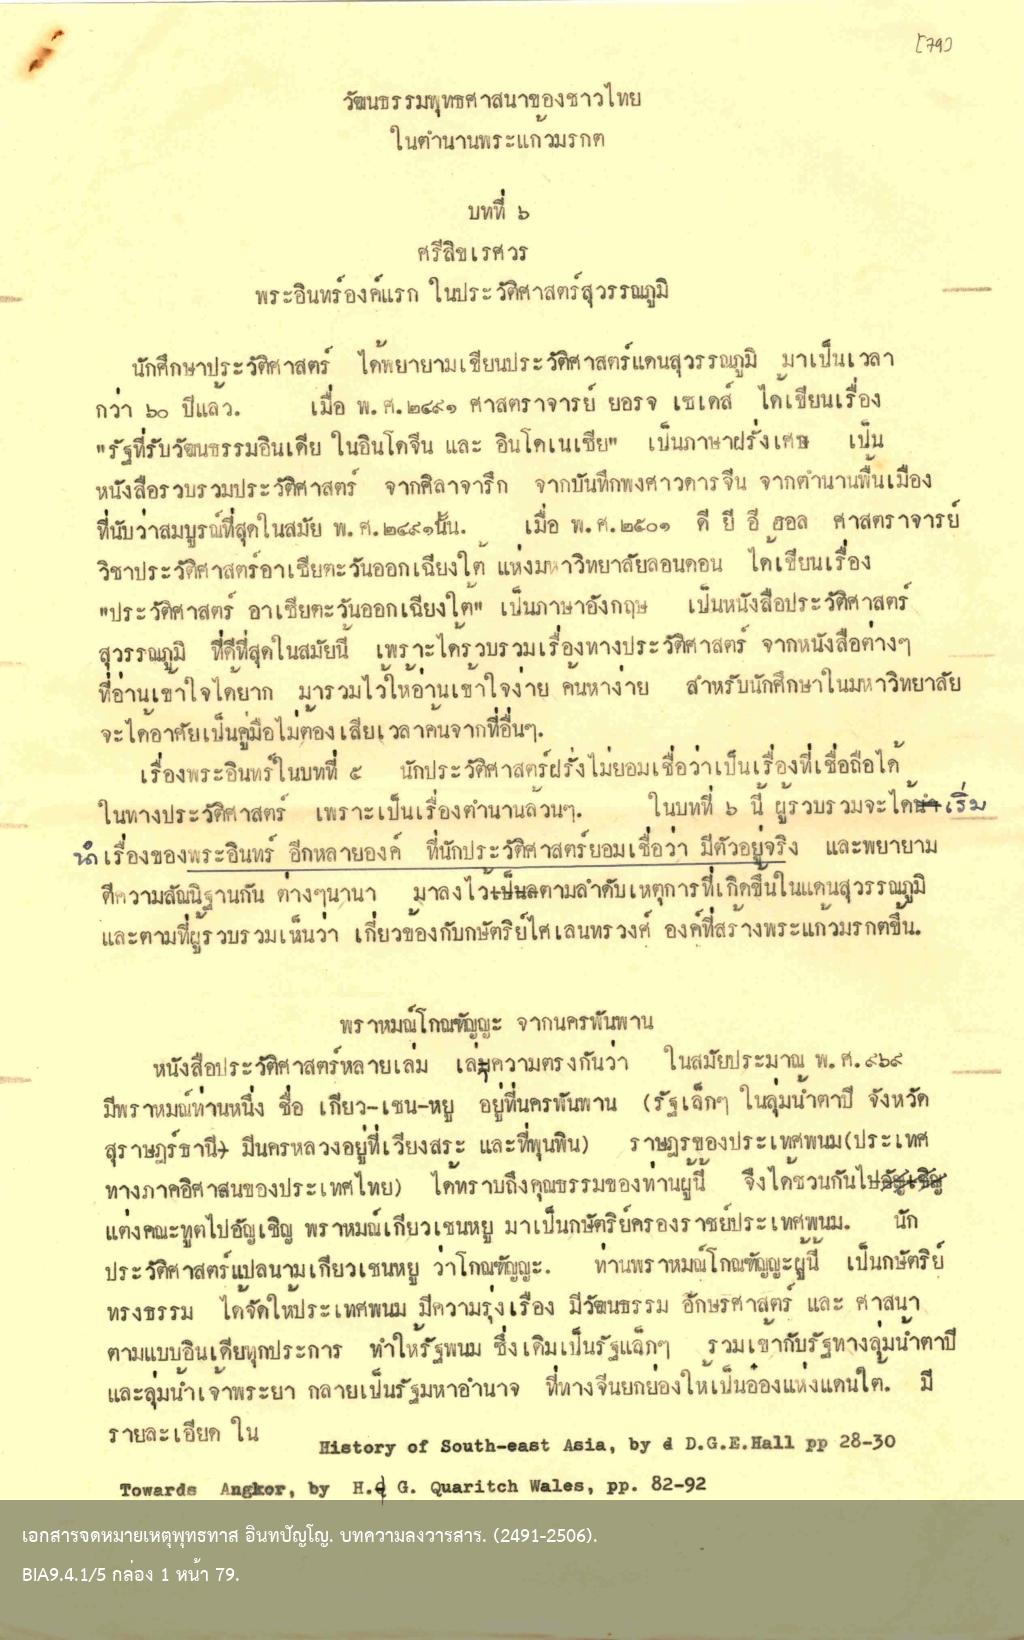 [79]
วัฒนธรรมพุทธศาสนาของชาวไทย
ในตำนานพระแก้วมรกต
บทที่ ๖
ศรีสิขเรศวร
พระอินทร์องค์แรก ในประวัติศาสตร์สุวรรณภูมิ
นักศึกษาประวัติศาสตร์ ได้พยายามเขียนประวัติศาสตร์แดนสุวรรณภูมิ มาเป็นเวลา
กว่า ๖๐ ปีแล้ว. เมื่อ พ.ศ.๒๔๙๑ ศาสตราจารย์ ยอรจ เซเดส์ ได้เขียนเรื่อง
"รัฐที่รับวัฒนธรรมอินเดีย ในอินโดจีน และ อินโดเนเซีย" เป็นภาษาฝรั่งเศษ เป็น
หนังสือรวบรวมประวัติศาสตร์ จากศิลาจารึก จากบันทึกพงศาวดารจีน จากตำนานพื้นเมือง
ที่นับว่าสมบูรณ์ที่สุดในสมัย พ.ศ.๒๔๙๑นั้น. เมื่อ พ.ศ.๒๕๐๑ ดี ยี อี ฮอล ศาสตราจารย์
วิชาประวัติศาสตร์อาเซียตะวันออกเฉียงใต้ แห่งมหาวิทยาลัยลอนดอน ได้เขียนเรื่อง
"ประวัติศาสตร์ อาเซียตะวันออกเฉียงใต้" เป็นภาษาอังกฤษ เป็นหนังสือประวัติศาสตร์
สุวรรณภูมิ ที่ดีที่สุดในสมัยนี้ เพราะได้รวบรวมเรื่องทางประวัติศาสตร์ จากหนังสือต่างๆ
ที่อ่านเข้าใจได้ยาก มารวมไว้ให้อ่านเข้าใจง่าย ค้นหาง่าย สำหรับนักศึกษาในมหาวิทยาลัย
จะได้อาศัยเป็นคู่มือไม่ต้องเสียเวลาค้นจากที่อื่นๆ.
เรื่องพระอินทร์ในบทที่ ๕ นักประวัติศาสตร์ฝรั่งไม่ยอมเชื่อว่าเป็นเรื่องที่เชื่อถือได้
ในทางประวัติศาสตร์ เพราะเป็นเรื่องตำนานล้วนๆ. ในบทที่ ๖ นี้ ผู้รวบรวมจะได้นำเริ่ม
นำเรื่องของพระอินทร์ อีกหลายองค์ ที่นักประวัติศาสตร์ยอมเชื่อว่า มีตัวอยู่จริง และพยายาม
ตีความสัณนิฐานกัน ต่างๆนานา มาลงไว้เป็นลตามลำดับเหตุการที่เกิดขึ้นในแดนสุวรรณภูมิ
และตามที่ผู้รวบรวมเห็นว่า เกี่ยวข้องกับกษัตริย์ไศเลนทรวงศ์ องค์ที่สร้างพระแก้วมรกตขึ้น.
พราหมณ์โกณฑัญญะ จากนครพันพาน
หนังสือประวัติศาสตร์หลายเล่ม เล่าความตรงกันว่า ในสมัยประมาณ พ.ศ.๙๖๙
มีพราหมณ์ท่านหนึ่ง ชื่อ เกียว-เชน-หยู อยู่ที่นครพันพาน (รัฐเล็กๆ ในลุ่มน้ำตาปี จังหวัด
สุราษฎร์ธานี) มีนครหลวงอยู่ที่เวียงสระ และที่พุนพิน) ราษฎรของประเทศพนม(ประเทศ
ทางภาคอิศาสนของประเทศไทย) ได้ทราบถึงคุณธรรมของท่านผู้นี้ จึงได้ชวนกันไปอัญเชิญ
แต่งคณะทูตไปอัญเชิญ พราหมณ์เกียวเชนหยู มาเป็นกษัตริย์ครองราชย์ประเทศพนม. นัก
ประวัติศาสตร์แปลนามเกียวเชนหยู ว่าโกณฑัญญะ. ท่านพราหมณ์โกณฑัญญะผู้นี้ เป็นกษัตริย์
ทรงธรรม ได้จัดให้ประเทศพนม มีความรุ่งเรือง มีวัฒนธรรม อักษรศาสตร์ และ ศาสนา
ตามแบบอินเดียทุกประการ ทำให้รัฐพนม ซึ่งเดิมเป็นรัฐเล็กๆ รวมเข้ากับรัฐทางลุ่มน้ำตาปี
และลุ่มน้ำเจ้าพระยา กลายเป็นรัฐมหาอำนาจ ที่ทางจีนยกย่องให้เป็นอ๋องแห่งแดนใต้. มี
รายละเอียด ใน
History of South-east Asia, by d D.G.E.Hall pp 28-30
Towards Angkor, by H. G. Quaritch Wales, pp. 82-92
เอกสารจดหมายเหตุพุทธทาส อินทปัญโญ. บทความลงวารสาร. (2491-2506).
BIA9.4.1/5 กล่อง 1 หน้า 79.